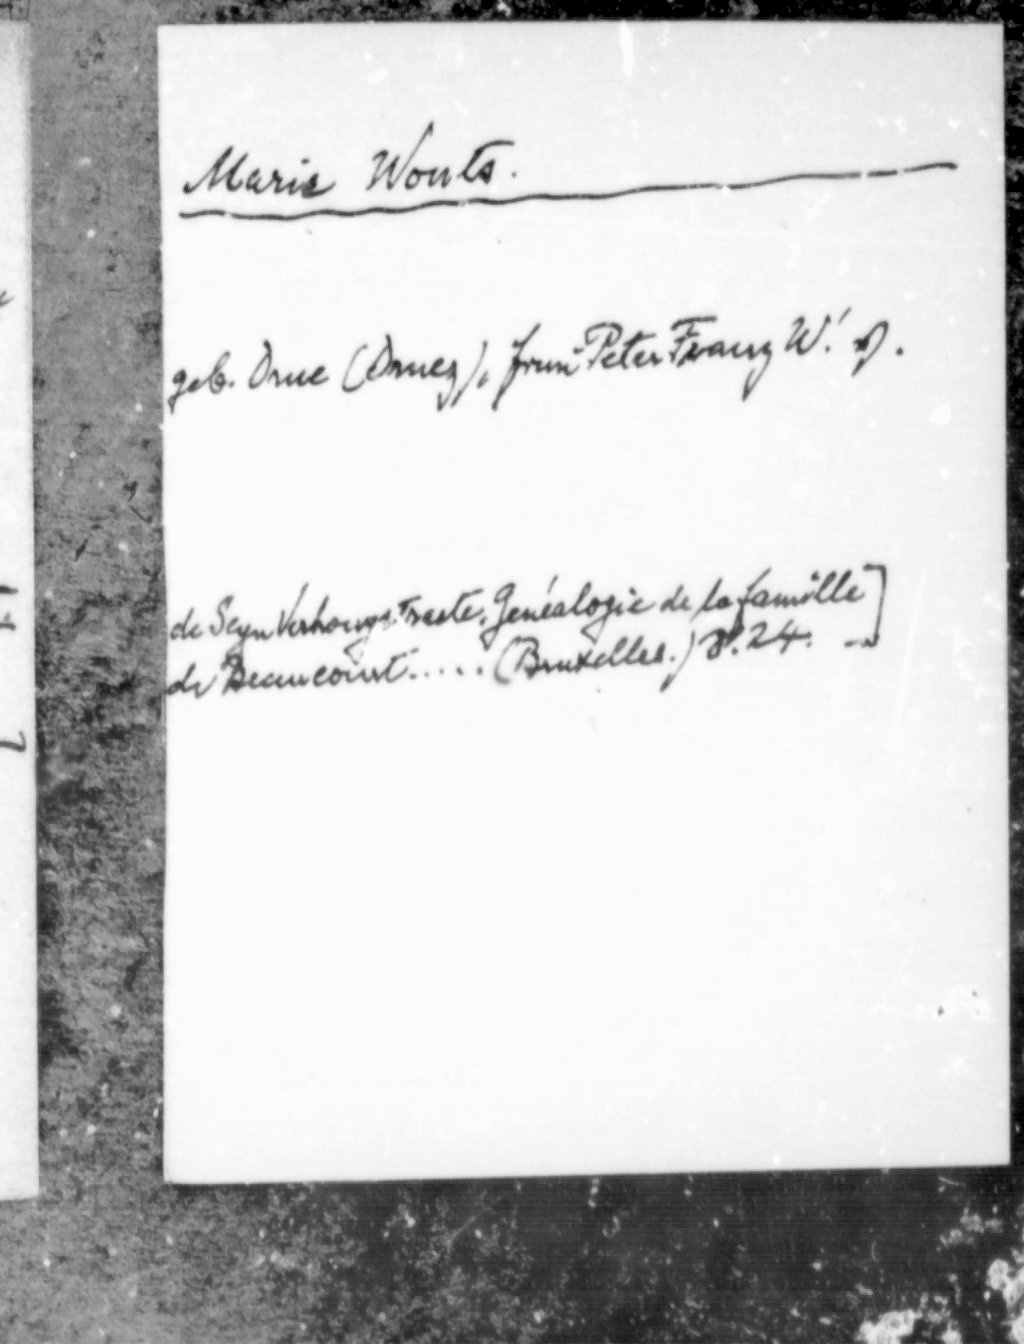 Marie Wouts.
geb. Drue (Druez), frun Peter Franz W.' s).
de Seyn Verhougstraete, Genéalogie de la famille]
de Beaucourt..... (Bruxelles.) S. 24. -